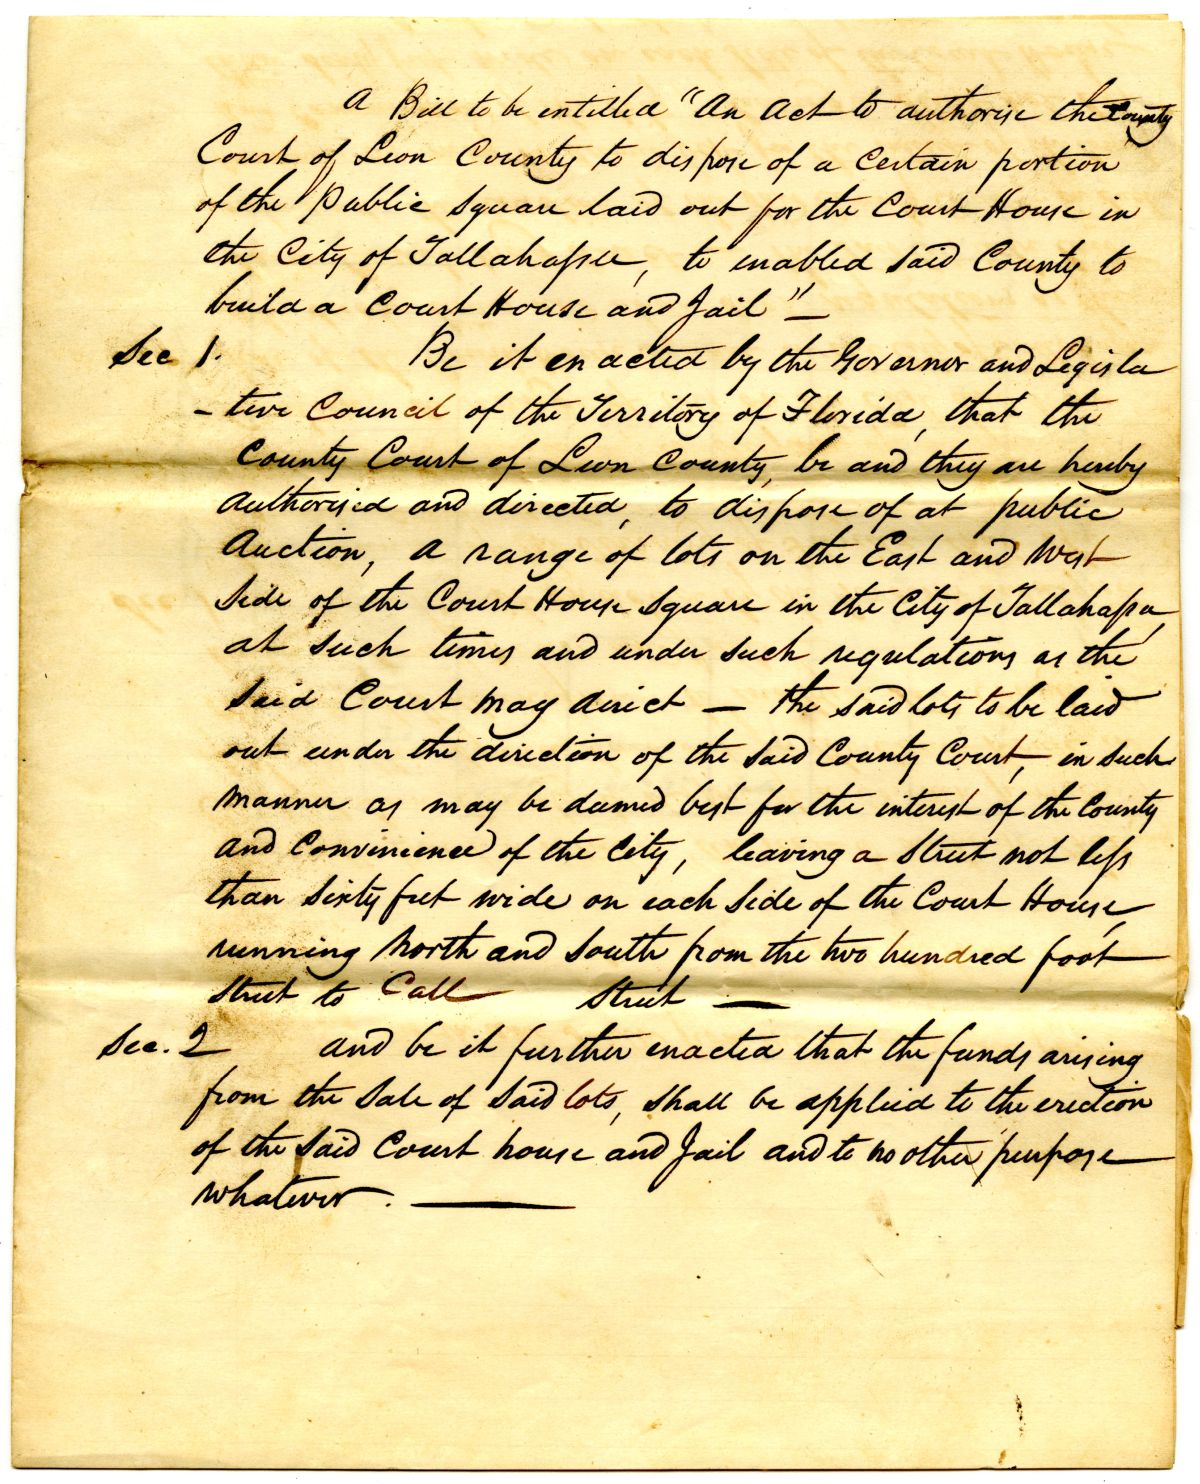 A Bill to be entitled "An Act to authorise the County
Court of Leon County to dispose of a certain portion
of the Public Square laid out for the Court House in
the City of Tallahassee, to enabled said County to
build a Court House and Jail" —
Sec 1. Be it enacted by the Governor and Legisla
- tive Council of the Territory of Florida, that the
County Court of Leon County, be and they are hereby
authorised and directed, to dispose of at public
Auction, a range of lots on the East and West
side of the Court House square in the City of Tallahassa,
at such times and under such regulations as the
said Court may direct — the said lots to be laid
out under the direction of the said County Court, in such
manner as may be deemed best for the interest of the County
and Convinience of the City, leaving a Street not less
than sixty feet wide on each side of the Court House,
running North and South from the two hundred foot
street to Call Street —
Sec. 2 and be it further enacted that the funds arising
from the sale of said lots, shall be applied to the erection
of the said Court house and Jail and to no other purpose
whatever. —